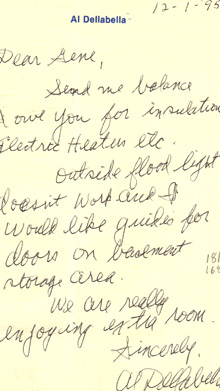 12-1-95
Al Dellabella
Dear Gene,
Send me balance
I owe you for insulation
Electric Heaters etc.
Outside flood light
doesn't work and I
Would like guides for
doors on basement
storage area.
We are really
enjoying extra room.
Sincerely,
Al Dellabella